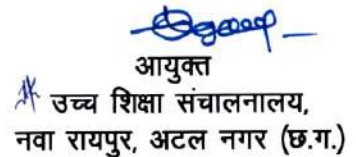 आयुक्त
उच्च शिक्षा संचालनालय,
नवा रायपुर, अटल नगर (छ.ग.)